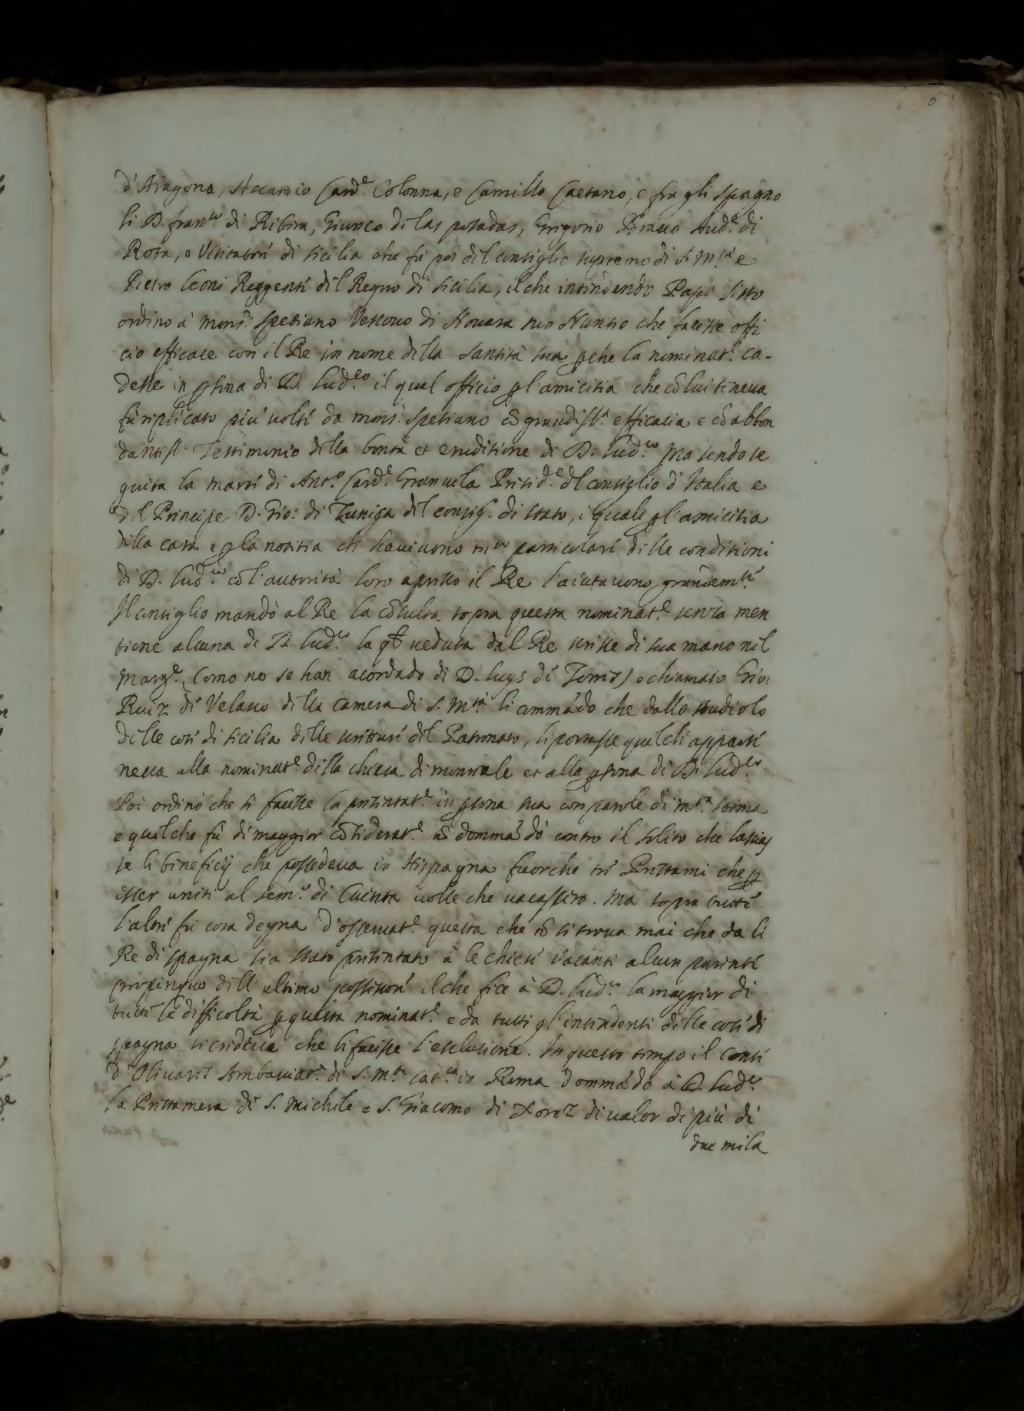 5
d'Aragona, Ascanio Card.e Colonna, e Camillo Caetano, e fra gli spagno
li D. Fran.co di Ribera, Giunco de las posadas, Grigorio Bravo Aud.e di
Rota, e Visitatori di sicilia che fù poi del consiglio supremo di S. M.tà e
Pietro leoni Reggenti del Regno di sicilia, il che intendendo Papa Sisto
ordinò à mons.r spetiano Vescovo di Novara suo Nuntio che facesse offi
cio efficace con il Re in nome della santità sua p che la nominat.e ca-
desse in psona di D. Lud.co il qual officio p l'amicitia che cõ lui teneva
fù riplicato più volte da mons.r spetiano cõ grandiss.a efficatia e cõ abbon
dantiss.o Testimonio della bontà et eruditione di D. Lud.co Ma sendo se
guita la morte di Ant.o Card.e Granvela Presid.e del consiglio d'Italia e
del Principe D. Gio: di Zuniga del consig.o di stato, i quali p l'amicitia
della casa e p la notitia che havevono m.to particolare delle conditioni
di D. Lud.co co l'autorità loro apresso il Re l'aiutavono grandem.te
Il consiglio mandò al Re la cõsulta sopra questa nominat.e senza men
tione alcuna di D. Lud.co la qle veduta dal Re scrisse di sua mano nel
marg.e Como no se han acordado di D. luys de Torres, e chiamato Gio:
Ruiz di Velasco della camera di S. M.tà li cõmãdo che dallo studiolo
delle cose di sicilia delle scritture del Patronato, li portasse quel che apparte
neva alla nominat.e della chiesa di monreale et alla psona di D. Lud.co
Poi ordinò che si facesse la pntintat.e in psona sua con parole di m.ta stima
e quel che fù di maggior cõsiderat.e nõ dommãdò contro il solito che lascias
se li beneficij che possedeva in Hispagna fuorche tre Prestami che p
esser uniti al sem.o di Cuenca volle che vacassero. Ma sopra tutte
l'altre fù cosa degna d'osservat.e questa che nõ si trova mai che da li
Re di spagna sia stato pntintato à le chiese vacanti alcun parente
propinquo dell'ultimo possessore il che fece à D. Lud.co la maggior di
tutte le difficoltà p questa nominat.e e da tutti gl'intendenti delle cose di
spagna si credeva che li facesse l'esclusione. In questo tempo il conte
d'Olivares Ambasciat.r di S. M.tà cat.ca in Roma dommãdò à D. Lud.co
la Prestamera di S. Michele e S. Giacomo di Xerez di valor di più di
due mila